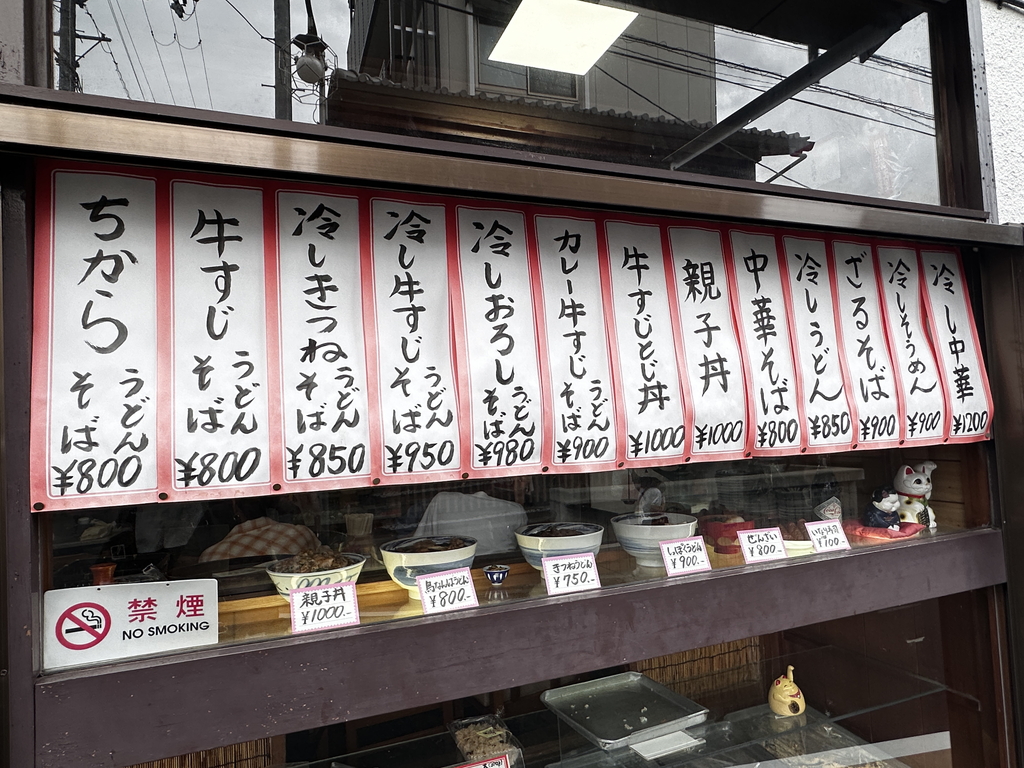 ちから
うどん
そば
¥800
牛すじ
うどん
そば
¥800
冷しきつね
うどん
そば
¥850
冷し牛すじ
うどん
そば
¥950
冷しおろし
うどん
そば
¥980
カレー牛すじ
うどん
そば
¥900
牛すじとじ丼
¥1000
親子丼
¥1000
中華そば
¥800
冷しうどん
¥850
ざるそば
¥900
冷しそうめん
¥900
冷し中華
¥1200
禁煙
NO SMOKING
親子丼
¥1000.-
鳥なんばうどん
¥800.-
きつねうどん
¥750.-
しっぽくうどん
¥900.-
ぜんざい
¥800.-
いなり寿司
¥700.-